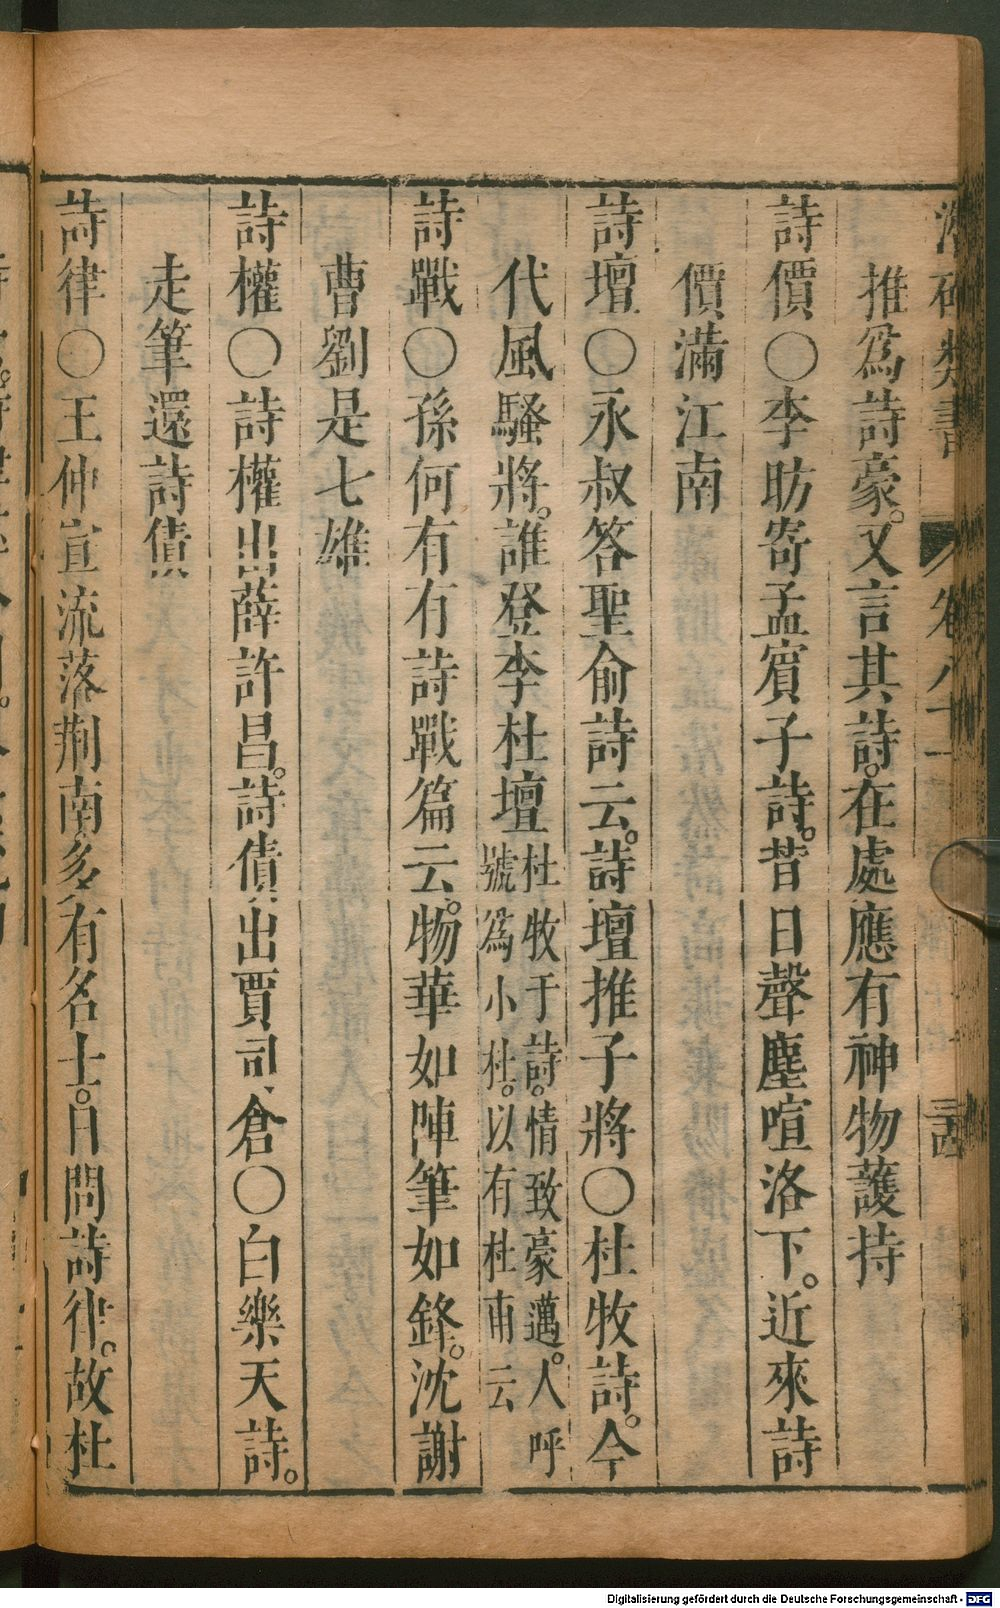 推爲詩豪。又言其詩。在處應有神物護持
詩價○李昉寄孟賓子詩。昔日聲塵喧洛下。近來詩
價滿江南
詩壇○永叔答聖俞詩云。詩壇推子將○杜牧詩。今
代風騷將。誰登李杜壇杜牧于詩。情致豪邁。人呼
號爲小杜。以有杜甫云
詩戰○孫何有有詩戰篇云。物華如陣筆如鋒。沈謝
曹劉是七雄
詩權○詩權出薛許昌。詩債出賈司倉○白樂天詩。
走筆還詩債
詩律○王仲宣流落荆南多有名士。日問詩律。故杜
類書 卷八十
Digitalisierung gefördert durch die Deutsche Forschungsgemeinschaft - DFG